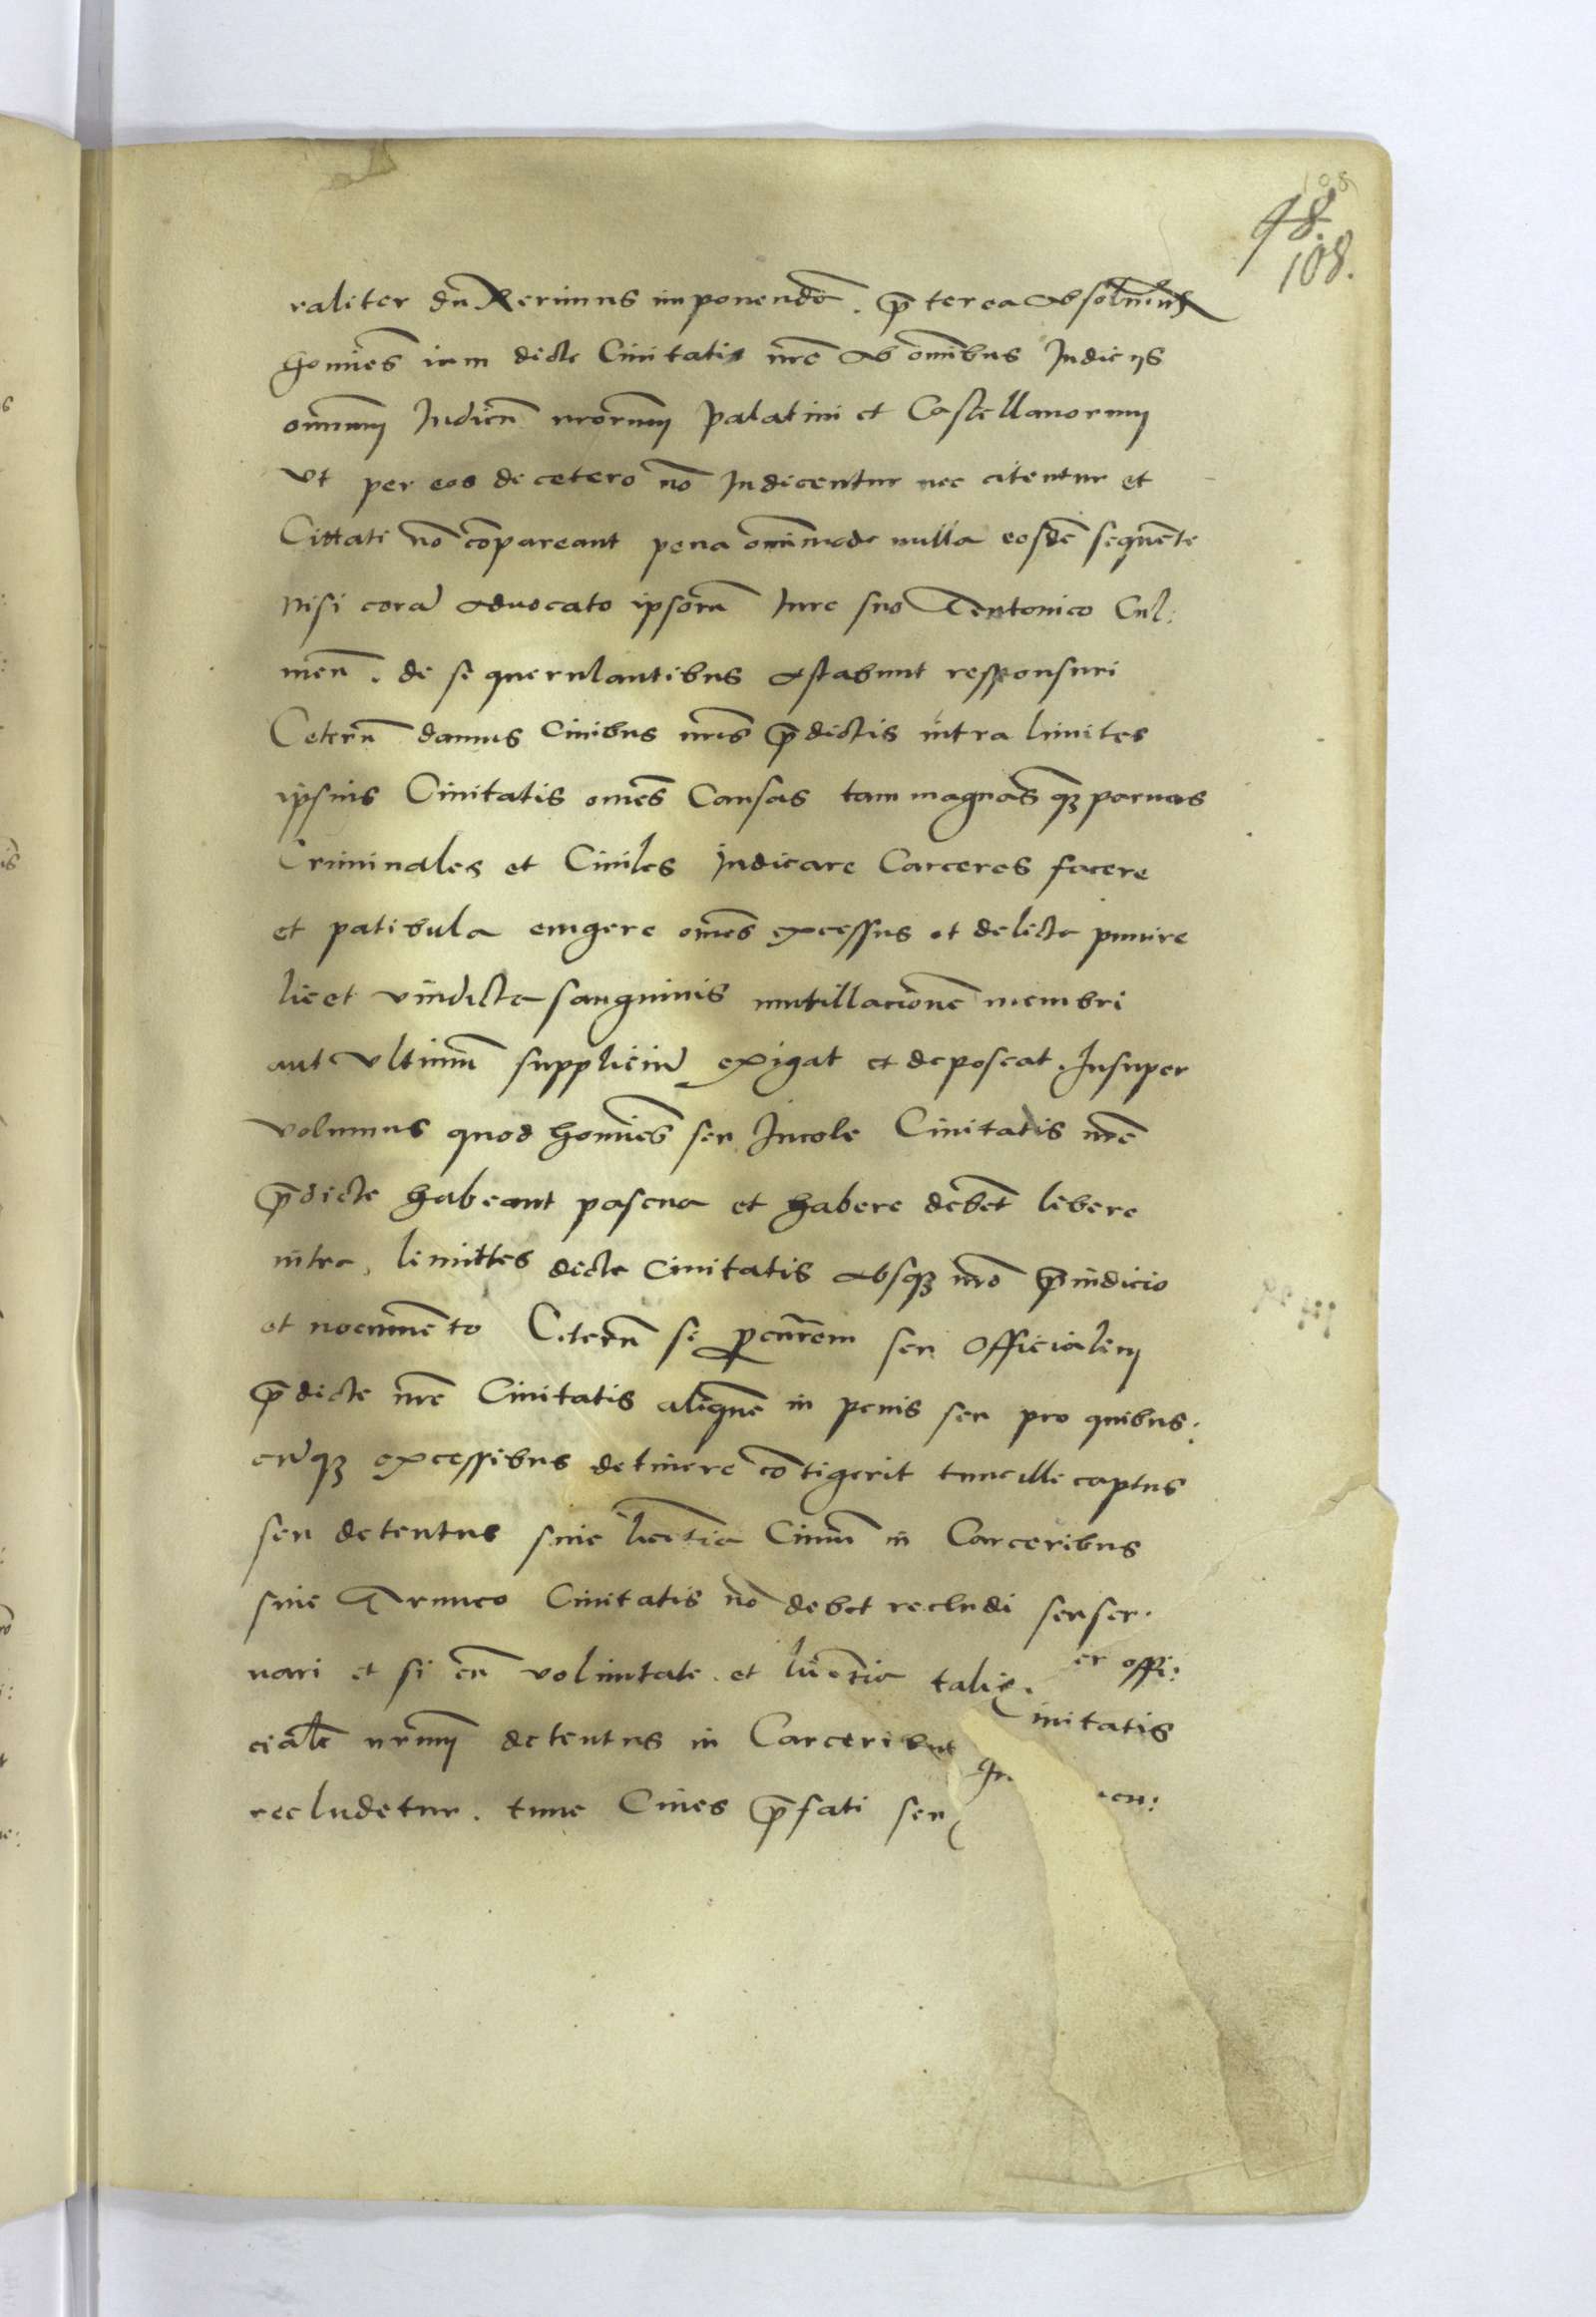 108
48.
108.
raliter duxerimus imponendā. p̄terea absoluim⁹
homīes iam dicte Ciuitatis nr̄e ab om̄ibus Iudicijs
omniuɱ Iudicū nr̄orum palatini et Castellanorum
vt per eos de cetero nō Iudicentur nec citentur et
Cittati nō cōpareant pena omnimode nulla eosdē sequēte
nisi corā aduocato ipsorū Iure suo Teutonico Cul:
men̄. de se querulantibus astabunt responsuri
Ceterū damus Ciuibus nr̄is p̄dictis intra limites
ipsius Ciuitatis om̄es Causas tam magnas qȝ paruas
Criminales et Ciuiles Iudicare Carceres facere
et patibula erigere om̄es excessus et delicta punire
licet vindicta sanguinis mutillacionē membri
aut vltimū suppliciū exigat et deposcat. Insuper
volumus quod homīes seu Incole Ciuitatis nr̄e
p̄dicte habeant pascua et habere debēt libere
intra limittes dicte Ciuitatis absqȝ nr̄o p̄iudicio
et nocumēto Ceterū si ꝓcur̄em seu Officialem
p̄dicte nr̄e Ciuitatis aliquē in penis seu pro quibus:
cūqȝ excessibus detinere cōtigerit tunc ille captus
seu detentus sine licētia Ciuiū in Carceribus
siue Trunco Ciuitatis nō debet recludi seu ser:
uari et si cū voluntate et licētia talis er offi:
cialē nr̄um detentus in Carceribus Ciuitatis
recludetur. tunc Ciues p̄fati seu